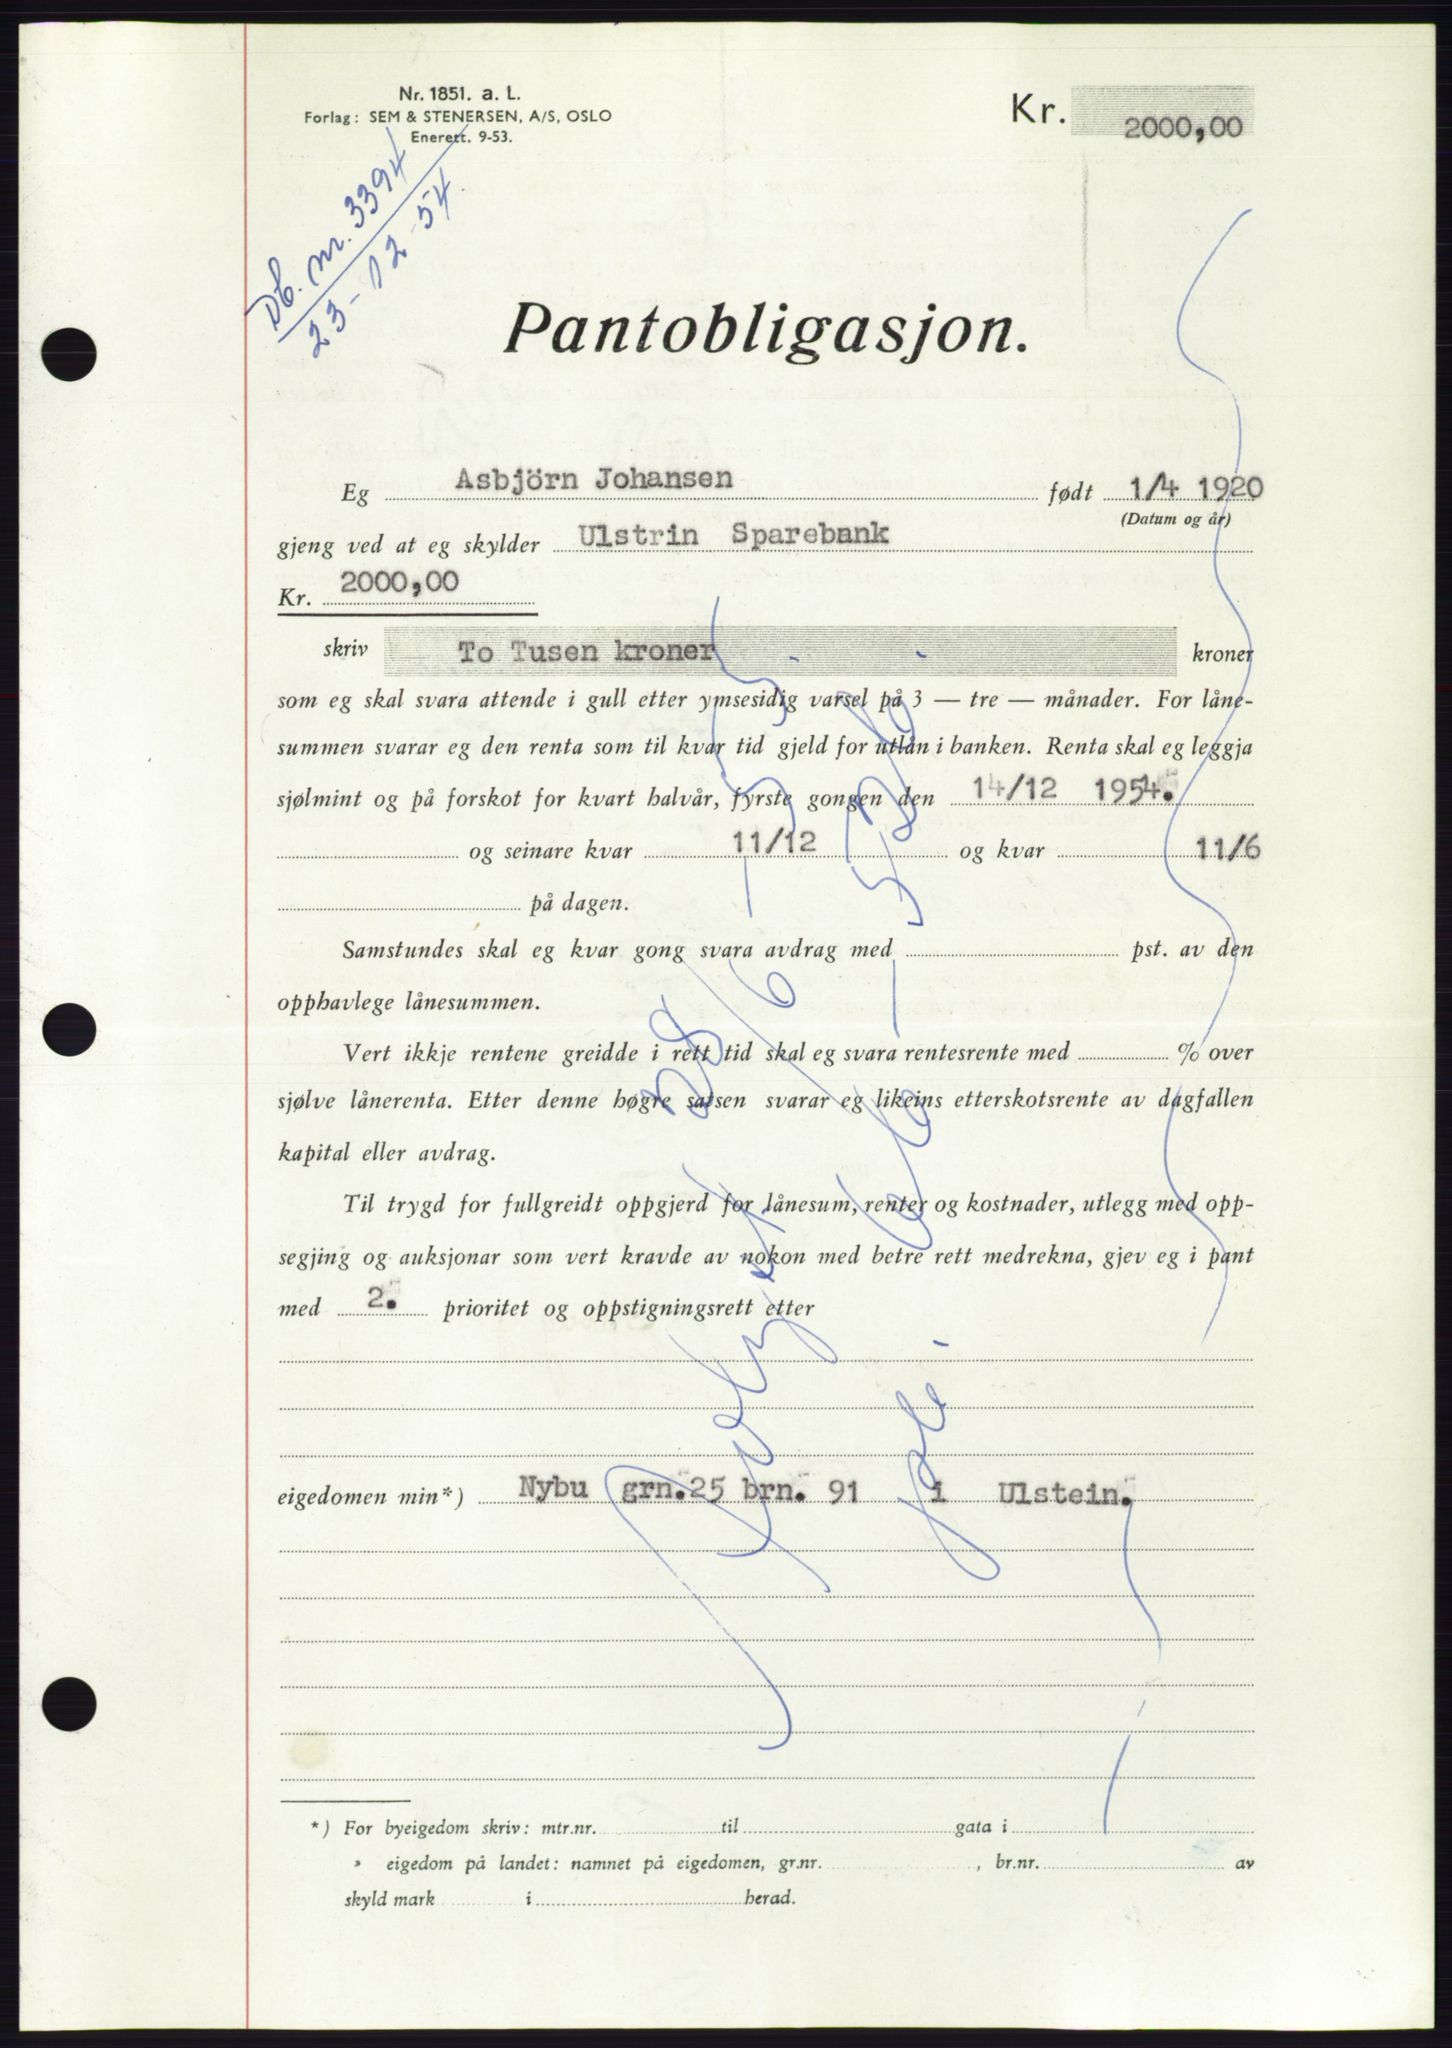 Nr. 1851. a. L.
Forlag: SEM & STENERSEN, A/S, OSLO
Enerett. 9-53.
Kr. 2000,00
Db. nr. 3394
23-12-54
Pantobligasjon.
Eg Asbjörn Johansen født 1/4 1920
(Datum og år)
gjeng ved at eg skylder Ulstrin Sparebank
Kr. 2000,00
skriv To Tusen kroner kroner
som eg skal svara attende i gull etter ymsesidig varsel på 3 — tre — månader. For låne-
summen svarar eg den renta som til kvar tid gjeld for utlån i banken. Renta skal eg leggja
sjølmint og på forskot for kvart halvår, fyrste gongen den 14/12 1954.
og seinare kvar 11/12 og kvar 11/6
på dagen.
Samstundes skal eg kvar gong svara avdrag med pst. av den
opphavlege lånesummen.
Vert ikkje rentene greidde i rett tid skal eg svara rentesrente med % over
sjølve lånerenta. Etter denne høgre satsen svarar eg likeins etterskotsrente av dagfallen
kapital eller avdrag.
Til trygd for fullgreidt oppgjerd for lånesum, renter og kostnader, utlegg med opp-
segjing og auksjonar som vert kravde av nokon med betre rett medrekna, gjev eg i pant
med 2. prioritet og oppstigningsrett etter
eigedomen min*) Nybu grn. 25 brn. 91 i Ulstein.
*) For byeigedom skriv: mtr.nr. til gata i
" eigedom på landet: namnet på eigedomen, gr.nr. , br.nr. av
skyld mark i herad.